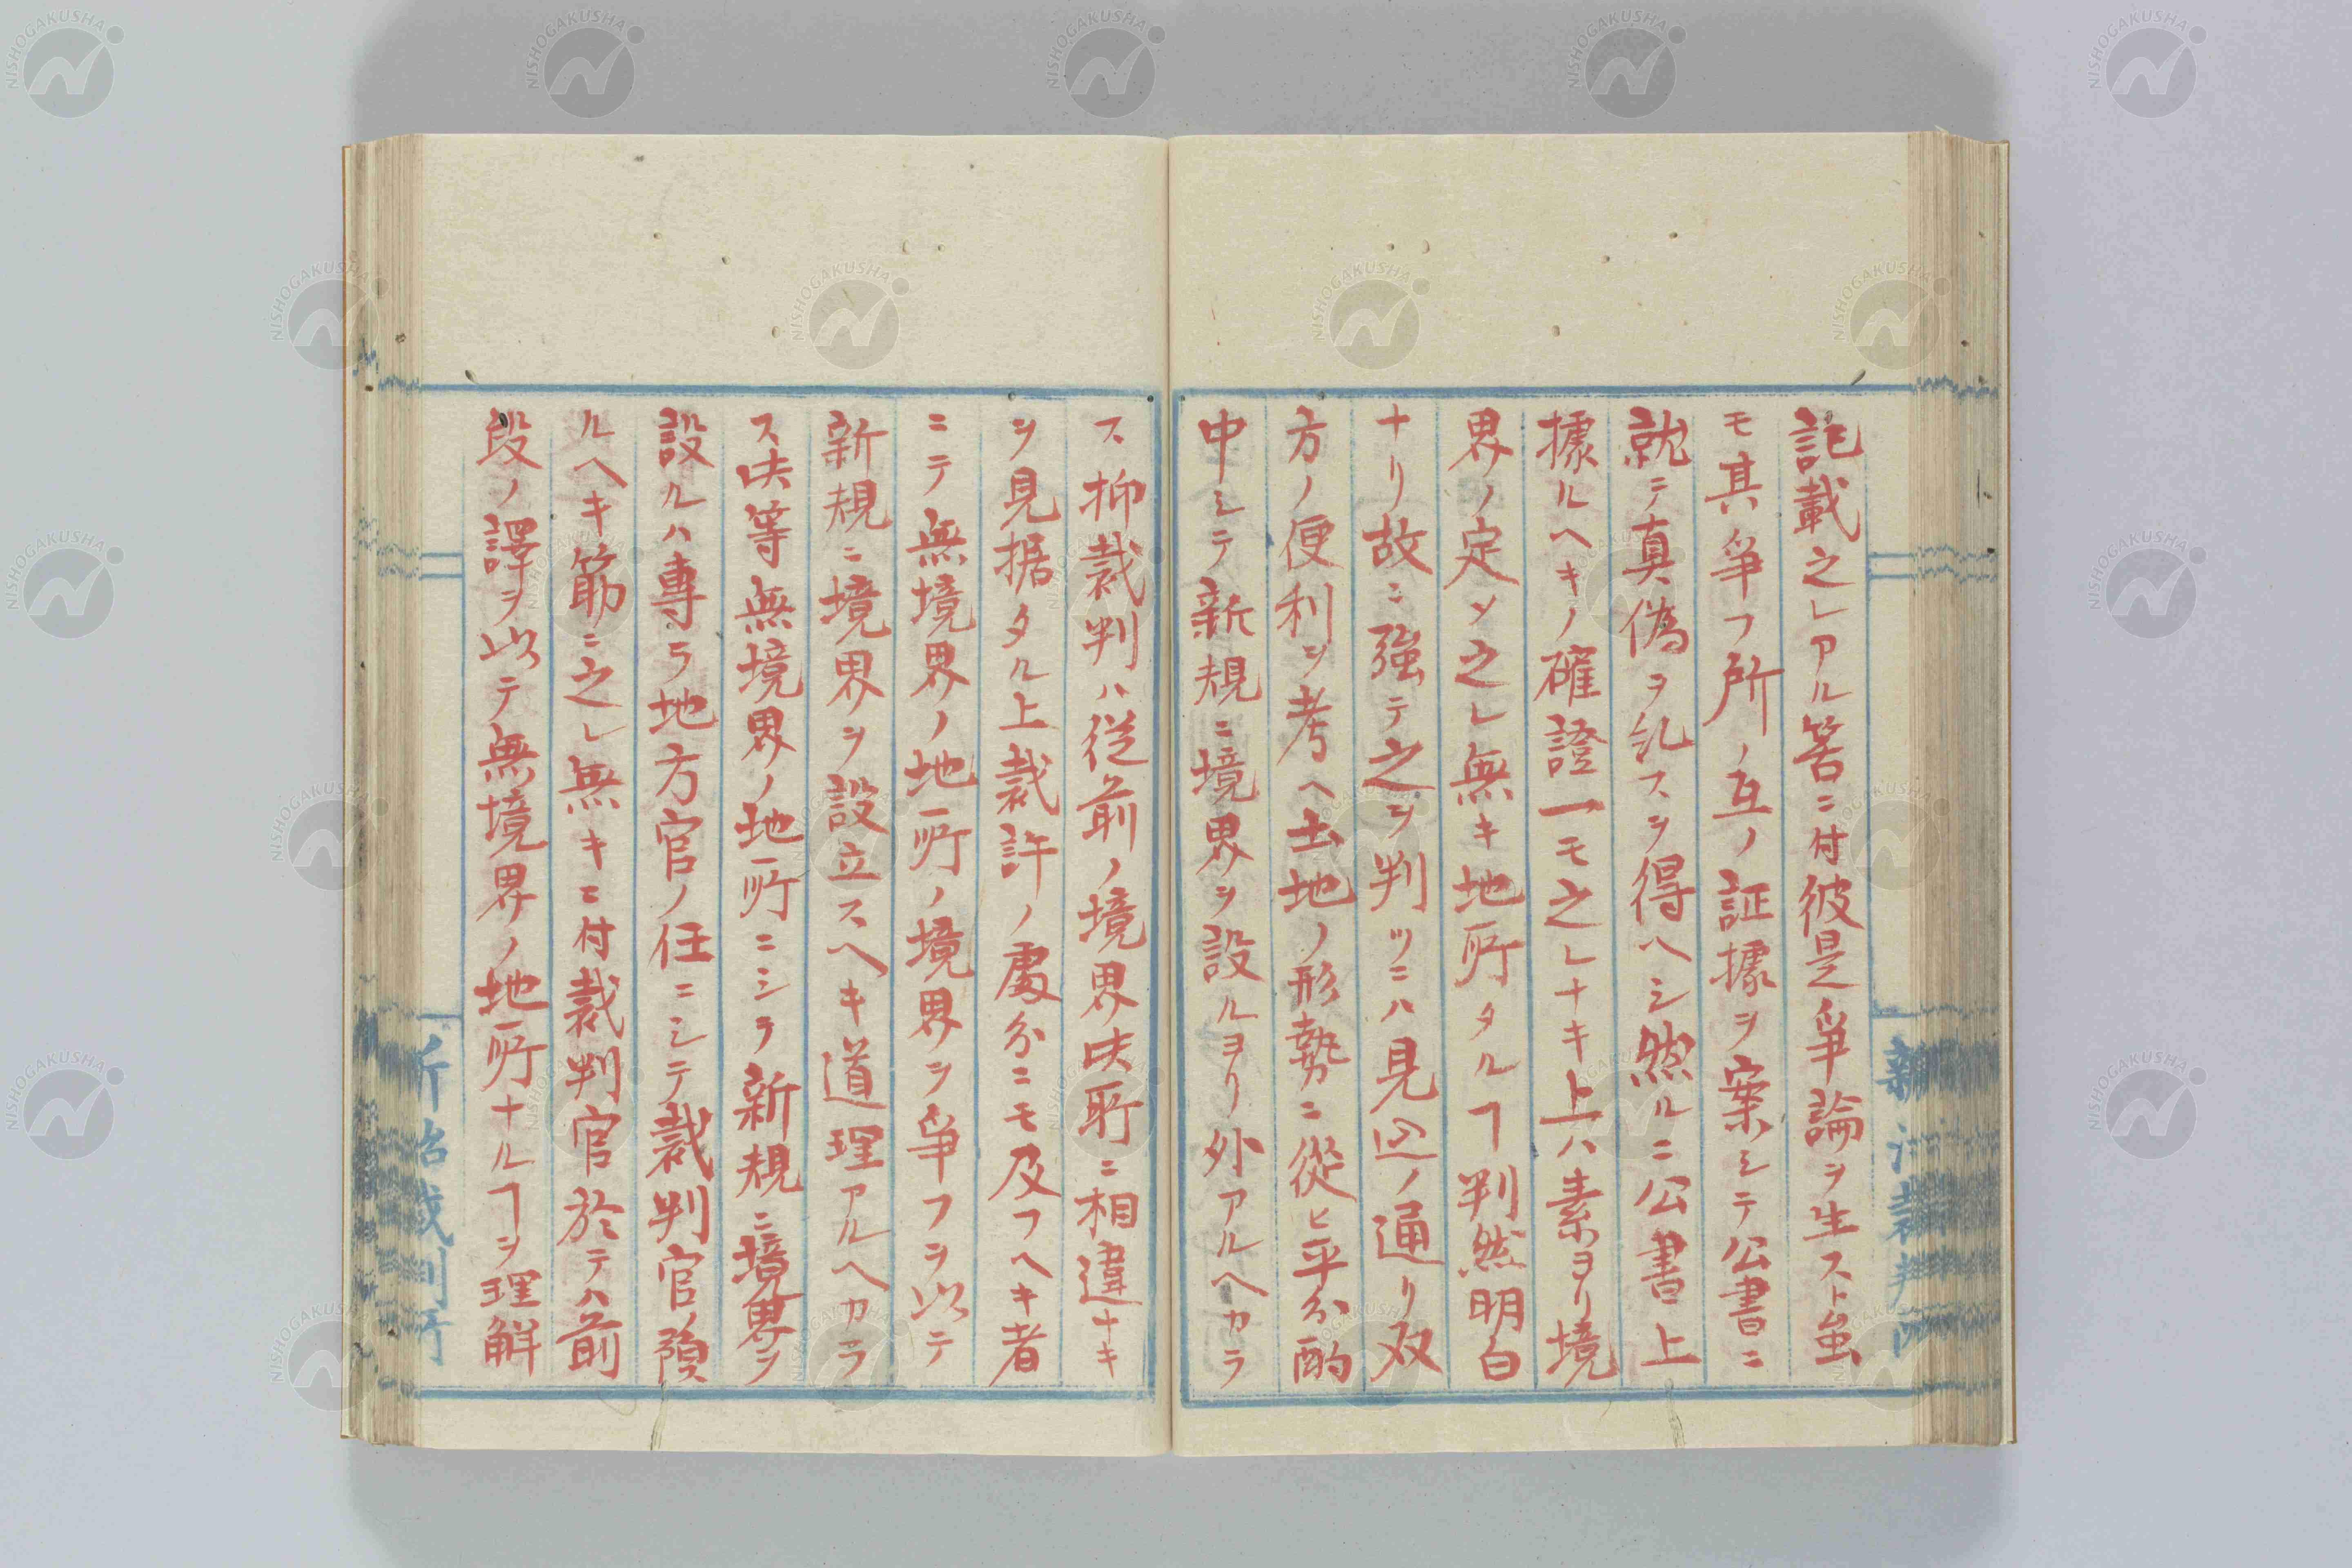 記載之レアル筈ニ付彼是爭論ヲ生スト虽
モ其爭フ所ノ互ノ証據ヲ案シテ公書ニ
就テ真偽ヲ糺スヲ得ヘシ然ルニ公書上
據ルヘキノ確證一モ之レナキ上ハ素ヨリ境
界ノ定メ之レ無キ地所タルヿ判然明白
ナリ故ニ強テ之ヲ判ツニハ見込ノ通リ双
方ノ便利ヲ考ヘ土地ノ形勢ニ從ヒ平分酌
中シテ新規ニ境界ヲ設ルヨリ外アルヘカラ
ス抑裁判ハ従前ノ境界此所ニ相違ナキ
ヲ見据タル上裁許ノ處分ニモ及フヘキ者
ニテ無境界ノ地所ノ境界ヲ爭フヲ以テ
新規ニ境界ヲ設立スヘキ道理アルヘカラ
ス此等無境界ノ地所ニシテ新規ニ境界ヲ
設ルハ專ラ地方官ノ任ニシテ裁判官ノ預
ルヘキ筋ニ之レ無キニ付裁判官於テハ前
段ノ譯ヲ以テ無境界ノ地所ナルヿヲ理解
新治裁判所
新治裁判所
NISHOGAKUSHA